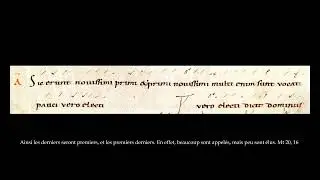 A Sic erunt novissimi primi & primi novissimi multi enim sunt vocati
pauci vero electi V vero electi dicit dominus
Ainsi les derniers seront premiers, et les premiers derniers. En effet, beaucoup sont appelés, mais peu sont élus. Mt 20, 16